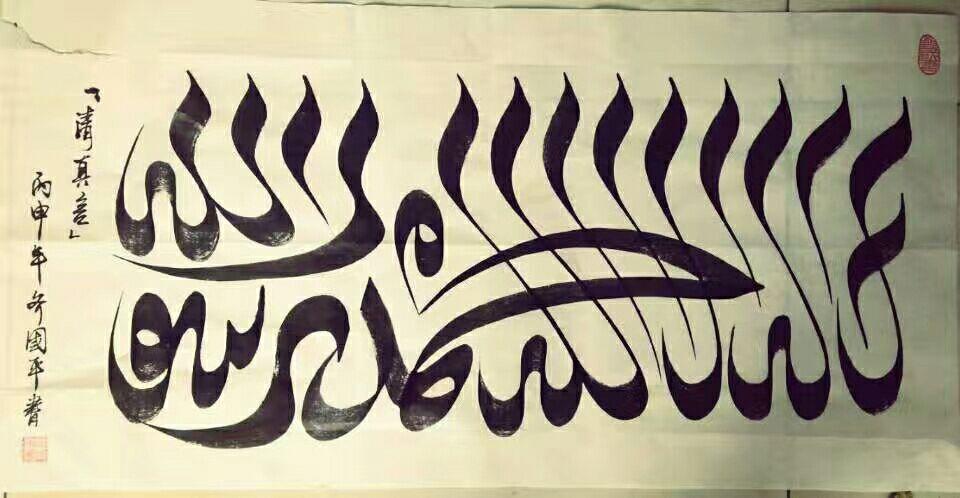 لا إله إلا الله محمد رسول الله
「清真言」
丙申年國平